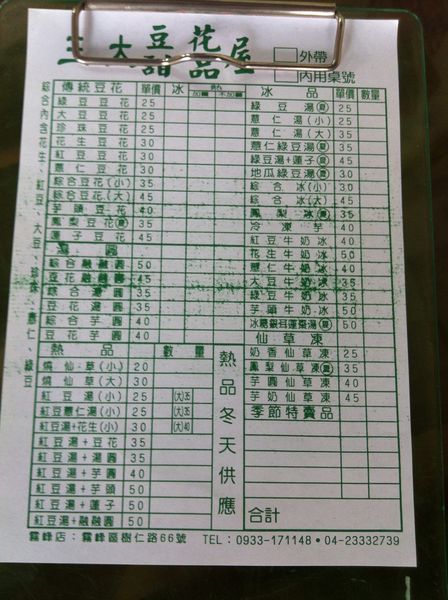 三大豆花甜品屋
外帶
內用桌號
傳統豆花 單價 冰 熱
綠豆豆花 25
大豆豆花 25
珍珠豆花 25
花生豆花 30
紅豆豆花 30
薏仁豆花 30
綜合豆花(小) 35
綜合豆花(大) 45
芋頭豆花 40
鳳梨豆花(夏) 35
蓮子豆花 45
湯圓
綜合融融圓 50
豆花融融圓 45
綜合湯圓 45
豆花湯圓 35
綜合芋圓 50
豆花芋圓 40
綜合內含花生、紅豆、大豆、珍珠、薏仁、綠豆
熱品 數量
燒仙草(小) 20
燒仙草(大) 30
紅豆湯(小) 25 (大)35
紅豆薏仁湯(小) 25 (大)35
紅豆湯+花生(小) 30 (大)40
紅豆湯+豆花 35
紅豆湯+湯圓 35
紅豆湯+芋圓 40
紅豆湯+芋頭 50
紅豆湯+蓮子 50
紅豆湯+融融圓 50
熱品冬天供應
冰品 單價 數量
綠豆湯(夏) 25
薏仁湯(小) 25
薏仁湯(大) 35
薏仁綠豆湯(夏) 35
綠豆湯+蓮子(夏) 45
地瓜綠豆湯(夏) 30
綜合冰(小) 35
綜合冰(大) 45
鳳梨冰(夏) 35
冷凍芋 45
紅豆牛奶冰 40
花生牛奶冰 40
薏仁牛奶冰 40
大豆牛奶冰 35
綠豆牛奶冰 35
芋頭牛奶冰 50
冰糖銀耳蓮棗湯(夏) 50
仙草凍
奶香仙草凍 25
鳳梨仙草凍(夏) 35
芋圓仙草凍 35
芋奶仙草凍 45
季節特賣品
合計
霧峰店：霧峰區樹仁路66號 TEL：0933-171148•04-23332739